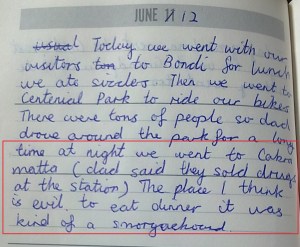 JUNE 12
Today we went with our
visitors to Bondi for lunch
we ate sizzlers Then we went to
Centenial Park to ride our bikes
There were tons of people so dad
drove around the park for a long
time at night we went to Cabra
matta (dad said they sold drugs
at the station) The place I think
is evil to eat dinner it was
kind of a smorgached.